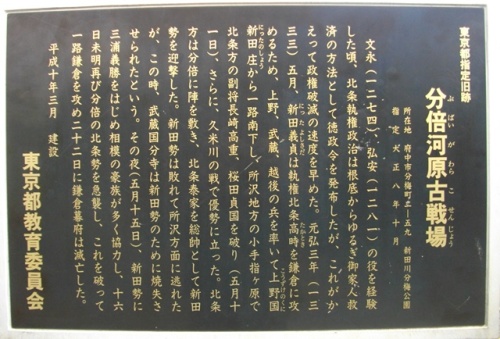 東京都指定旧跡
分倍河原古戦場
ぶばいがわらこせんじょう
所在地 府中市分梅町二－五九 新田川分梅公園
指定 大正八年十月
文永（一二七四）、弘安（一二八一）の役を経験
した頃、北条執権政治は根底からゆるぎ御家人救
済の方法として徳政令を発布したが、これがか
えって政権破滅の速度を早めた。元弘三年（一三
三三）五月、新田義貞は執権北条高時を鎌倉に攻
めるため、上野、武蔵、越後の兵を率いて上野国
新田庄から一路南下し、所沢地方の小手指ヶ原で
北条方の副将長崎高重、桜田貞国を破り（五月十
一日）、さらに、久米川の戦で優勢に立った。北条
方は分倍に陣を敷き、北条泰家を総帥として新田
勢を迎撃した。新田勢は敗れて所沢方面に逃れた
が、この時、武蔵国分寺は新田勢のために焼失さ
せられたという。その夜（五月十五日）、新田勢に
三浦義勝をはじめ相模の豪族が多く協力し、十六
日未明再び分倍の北条勢を急襲し、これを破って
一路鎌倉を攻め二十二日に鎌倉幕府は滅亡した。
平成十年三月 建設
東京都教育委員会